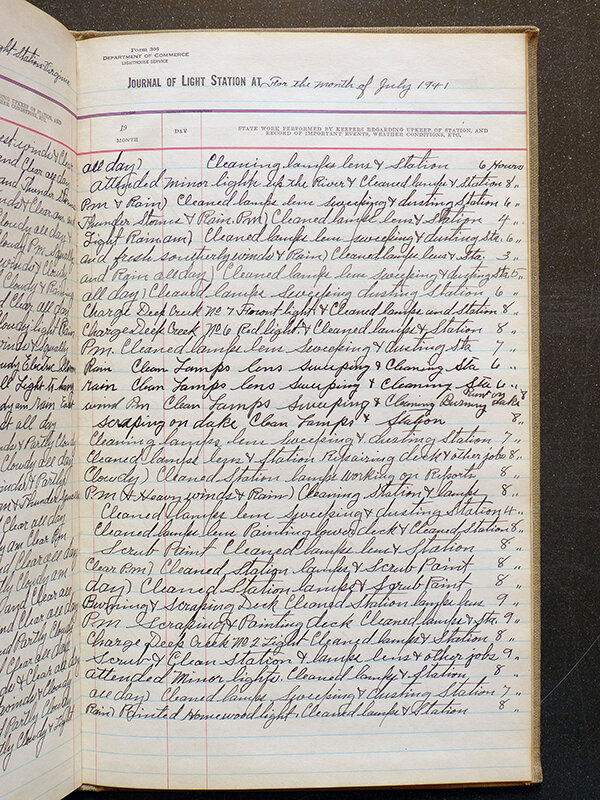 Light Station Virginia
Form 306
DEPARTMENT OF COMMERCE
LIGHTHOUSE SERVICE
JOURNAL OF LIGHT STATION AT For the month of July 1941
19
MONTH
DAY
STATE WORK PERFORMED BY KEEPERS REGARDING UPKEEP OF STATION, AND
RECORD OF IMPORTANT EVENTS, WEATHER CONDITIONS, ETC.
all day) Cleaning lamps lens & station 6 Hours
attended minor lights up the River & Cleaned lamps & Station 8 "
Pm & Rain) Cleaned lamps lens sweeping & dusting Station 6 "
Thunder Storms & Rain. Pm) Cleaned lamps lens & Station 4 "
Light Rain am) Cleaned lamps lens sweeping & dusting Sta. 6 "
and fresh southerly winds & Rain) Cleaned lamps lens & Sta. 3 "
and Rain all day) Cleaned lamps lens sweeping & dusting Sta 5 "
all day) Cleaned lamps sweeping dusting station 6 "
Charge Deep Creek No. 7 Front light & Cleaned lamps and station 8 "
Charge Deep Creek No 6 Red light & Cleaned lamps & Station 8 "
Pm. Cleaned lamps lens sweeping & dusting Sta 7 "
Rain Clean Lamps lens sweeping & Cleaning Sta 6 "
rain Clean Lamps lens sweeping & Cleaning Sta 6 "
wind Pm Clean Lamps sweeping & Cleaning Burning Paint on dake 8
scraping on dake Clean Lamps & Station 8 "
Cleaning lamps lens sweeping & dusting Station 7 "
Cleaned lamps lens & Station Repairing desk & other jobs 8 "
Cloudy) Cleaned Station lamps working on Reports 8 "
Pm & Heavy winds & Rain) Cleaning Station & lamps 8 "
Cleaned lamps lens sweeping & dusting Station 4 "
Cleaned lamps lens Painting lower deck & Cleaned Station 8 "
Scrub Paint Cleaned lamps lens & Station 8 "
Clear Pm) Cleaned Station lamps & Scrub Paint 8 "
day) Cleaned Station lamps & Scrub Paint 8 "
Burning & Scraping Deck Cleaned Station lamps lens 9 "
Pm Scraping & Painting deck Cleaned lamps & Sta. 9 "
Charge Deep Creek No 2 Light Cleaned lamps & Station 8 "
Scrub & Clean Station & lamps lens & other jobs 9 "
attended Minor lights. Cleaned lamps & Station 8 "
all day) Cleaned lamps sweeping & dusting Station 7 "
Rain) Painted Homewood light, Cleaned lamps & Station 8 "